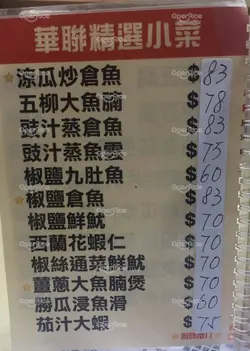 華聯精選小菜
涼瓜炒倉魚 $83
五柳大魚腩 $78
豉汁蒸倉魚 $83
豉汁蒸魚雲 $75
椒鹽九肚魚 $60
椒鹽倉魚 $83
椒鹽鮮魷 $70
西蘭花蝦仁 $70
椒絲通菜鮮魷 $70
薑蔥大魚腩煲 $70
勝瓜浸魚滑 $60
茄汁大蝦 $75